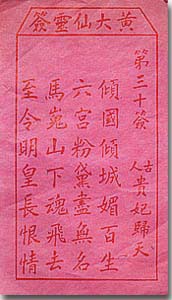 黃大仙靈簽
第三十簽
古人
貴妃歸天
傾國傾城媚百生
六宮粉黛盡無名
馬嵬山下魂飛去
至令明皇長恨情